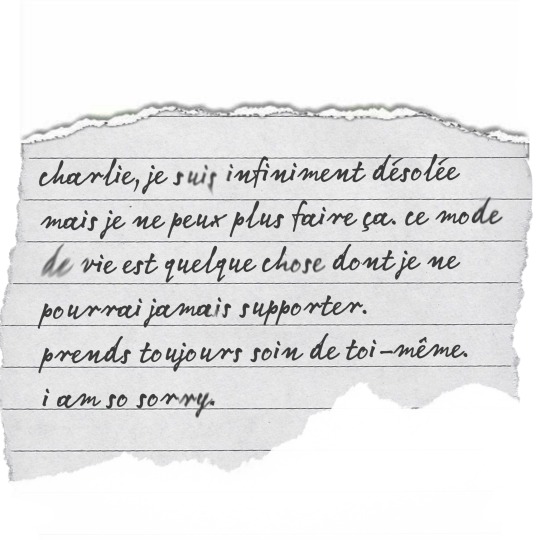 charlie, je suis infiniment désolée
mais je ne peux plus faire ça. ce mode
de vie est quelque chose dont je ne
pourrai jamais supporter.
prends toujours soin de toi-même.
i am so sorry.